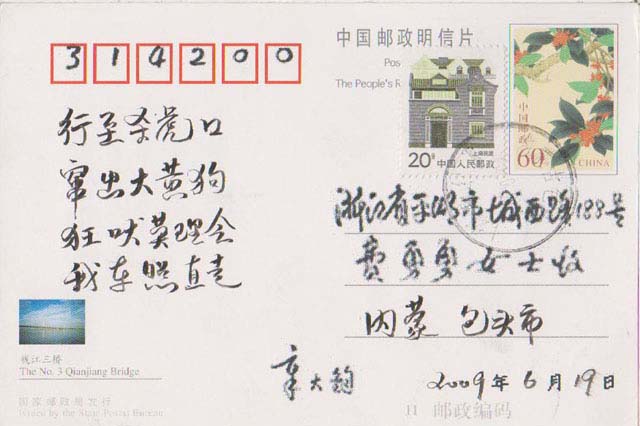 314200
中国邮政明信片
Pos
The People's R
行至杀虎口
窜出大黄狗
狂吠莫理会
我车照直走
上海民居
20分 中国人民邮政
中国邮政
60
CHINA
浙江省平湖市城西路188号
费勇勇女士收
内蒙 包头市
章大钧
2009年6月19日
钱江三桥
The No. 3 Qianjiang Bridge
国家邮政局发行
Issued by the State Postal Bureau
邮政编码